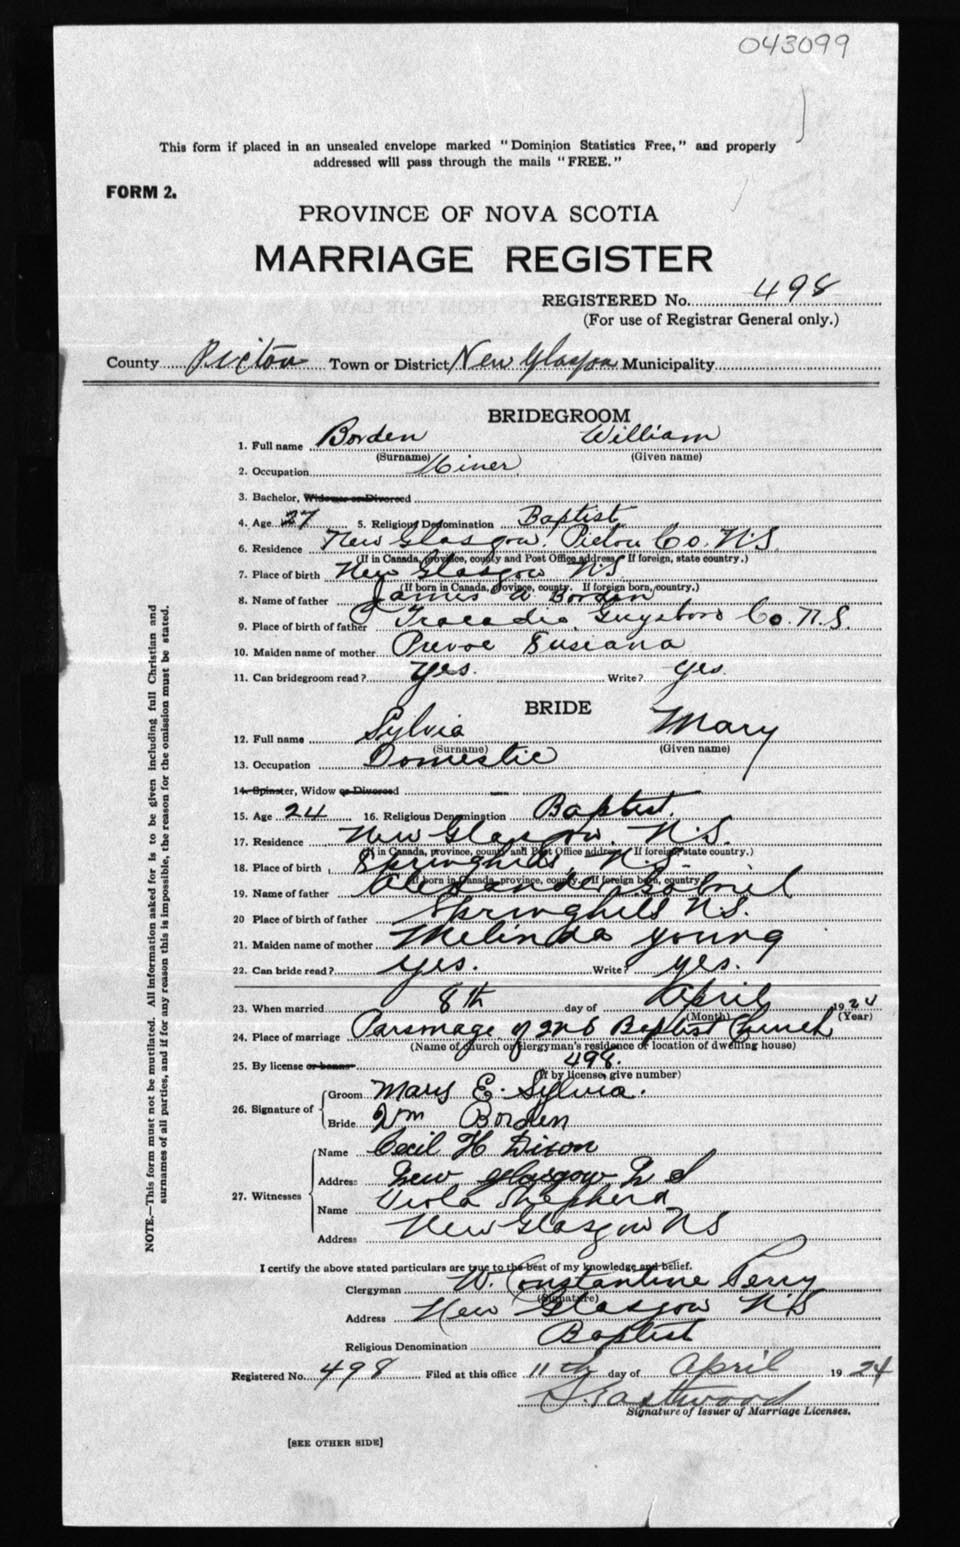 043099
This form if placed in an unsealed envelope marked "Dominion Statistics Free," and properly
addressed will pass through the mails "FREE."
FORM 2.
PROVINCE OF NOVA SCOTIA
MARRIAGE REGISTER
REGISTERED No. 498
(For use of Registrar General only.)
County Pictou Town or District New Glasgow Municipality
BRIDEGROOM
1. Full name Borden William
(Surname) (Given name)
2. Occupation Miner
3. Bachelor, Widower or Divorced
4. Age 27 5. Religious Denomination Baptist
6. Residence New Glasgow, Pictou Co. N.S.
(If in Canada, province, county and Post Office address. If foreign, state country.)
7. Place of birth New Glasgow N.S.
(If born in Canada, province, county. If foreign born, country.)
8. Name of father James A Borden
9. Place of birth of father Tracadie Guysboro Co. N.S.
10. Maiden name of mother Prevoe Susiana
11. Can bridegroom read? Yes. Write? yes.
BRIDE
12. Full name Sylvia Mary
(Surname) (Given name)
13. Occupation Domestic
14. Spinster, Widow or Divorced
15. Age 24 16. Religious Denomination Baptist.
17. Residence New Glasgow, N.S.
(If in Canada, province, county and Post Office address. If foreign, state country.)
18. Place of birth Springhill N.S.
(If born in Canada, province, county. If foreign born, country
19. Name of father Alexander Gabriel
20 Place of birth of father Springhill N.S.
21. Maiden name of mother Melinda young
22. Can bride read? yes. Write? yes.
23. When married 8th day of April 1924
(Month) (Year)
24. Place of marriage Parsonage of 2nd Baptist Church
(Name of church or clergyman's residence or location of dwelling house)
25. By license or banns 498.
(If by license, give number)
26. Signature of
Groom Mary E. Sylvia.
Bride Wm Borden
27. Witnesses
Name Cecil H Dixon
Address New glasgow N S
Name Viola Shepherd
Address New Glasgow NS
I certify the above stated particulars are true to the best of my knowledge and belief.
Clergyman W. Constantine Perry
(Signature)
Address New Glasgow N.S
Religious Denomination Baptist
Registered No. 498 Filed at this office 11th day of April 1924
Eastwood
Signature of Issuer of Marriage Licenses.
[SEE OTHER SIDE]
NOTE.—This form must not be mutilated. All information asked for is to be given including full Christian and
surnames of all parties, and if for any reason this is impossible, the reason for the omission must be stated.